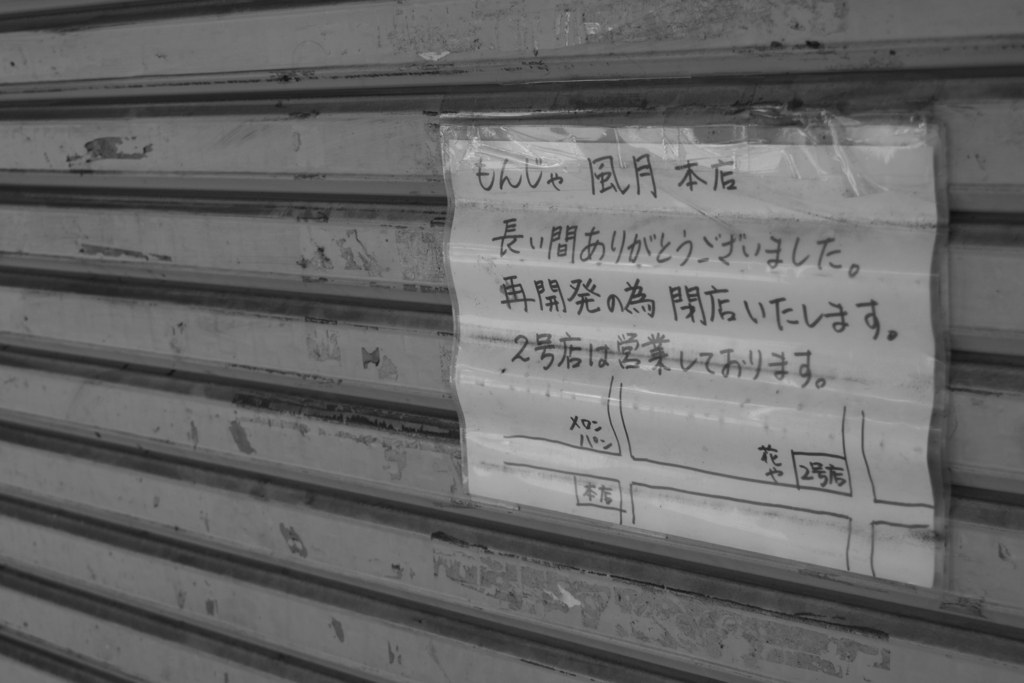 もんじゃ 風月 本店
長い間ありがとうございました。
再開発の為 閉店いたします。
2号店は営業しております。
メロン
パン
花や
2号店
本店